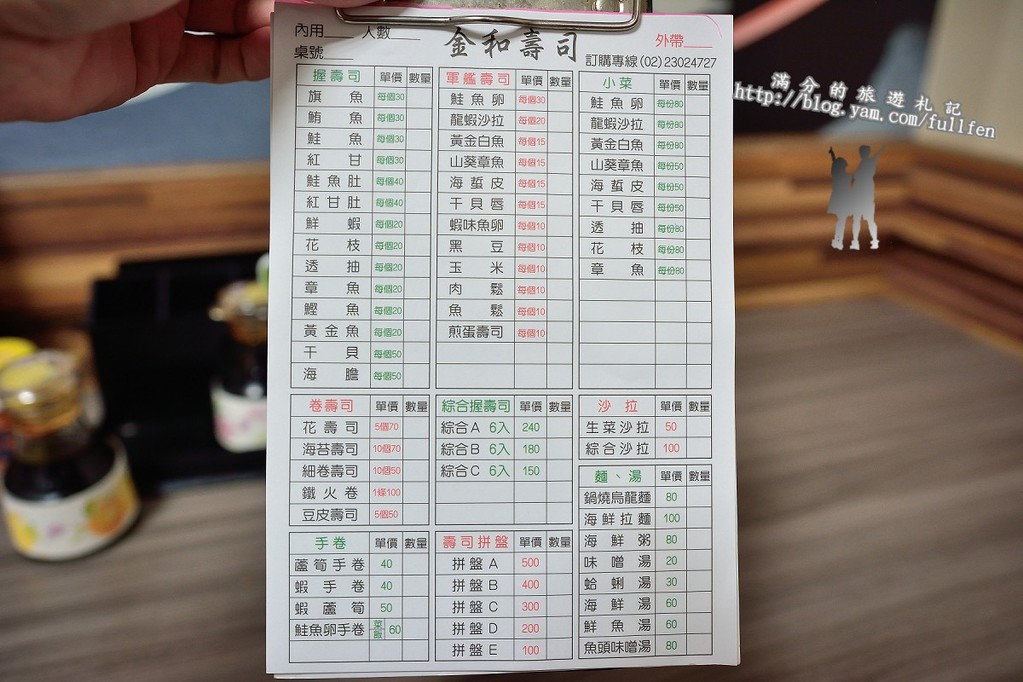 內用____ 人數____
桌號____
金和壽司
外帶____
訂購專線(02)23024727
握壽司 單價 數量
旗魚 每個30
鮪魚 每個30
鮭魚 每個30
紅甘 每個30
鮭魚肚 每個40
紅甘肚 每個40
鮮蝦 每個20
花枝 每個20
透抽 每個20
章魚 每個20
鰹魚 每個20
黃金魚 每個20
干貝 每個50
海膽 每個50
軍艦壽司 單價 數量
鮭魚卵 每個30
龍蝦沙拉 每個20
黃金白魚 每個15
山葵章魚 每個15
海蜇皮 每個15
干貝唇 每個15
蝦味魚卵 每個10
黑豆 每個10
玉米 每個10
肉鬆 每個10
魚鬆 每個10
煎蛋壽司 每個10
小菜 單價 數量
鮭魚卵 每份80
龍蝦沙拉 每份80
黃金白魚 每份80
山葵章魚 每份50
海蜇皮 每份50
干貝唇 每份50
透抽 每份80
花枝 每份80
章魚 每份80
卷壽司 單價 數量
花壽司 5個70
海苔壽司 10個70
細卷壽司 10個50
鐵火卷 1條100
豆皮壽司 5個50
綜合握壽司 單價 數量
綜合A 6入 240
綜合B 6入 180
綜合C 6入 150
沙拉 單價 數量
生菜沙拉 50
綜合沙拉 100
麵、湯 單價 數量
鍋燒烏龍麵 80
海鮮拉麵 100
海鮮粥 80
味噌湯 20
蛤蜊湯 30
海鮮湯 60
鮮魚湯 60
魚頭味噌湯 80
手卷 單價 數量
蘆筍手卷 40
蝦手卷 40
蝦蘆筍 50
鮭魚卵手卷 菜飯 60
壽司拼盤 單價 數量
拼盤A 500
拼盤B 400
拼盤C 300
拼盤D 200
拼盤E 100
滿分的旅遊札記
http://blog.yam.com/fullfen